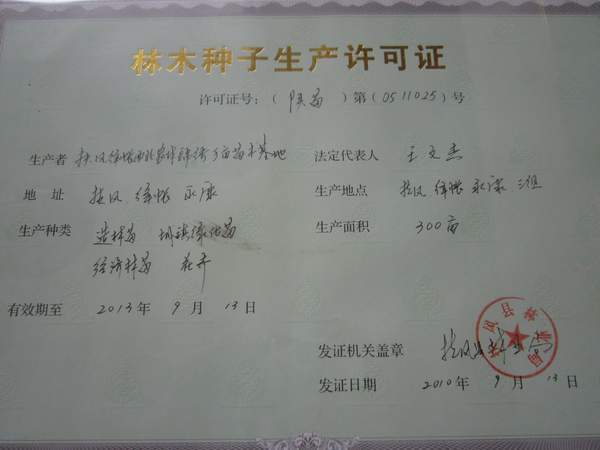 林木种子生产许可证
许可证号：（ 陕苗 ）第（0511025）号
生产者 扶风绛帐西北农林 苗木基地
法定代表人 王文杰
地 址 扶风 绛帐 永康
生产地点 扶风 绛帐 永康 三组
生产种类 造林苗 城镇绿化苗
经济林苗 花卉
生产面积 300亩
有效期至 2013年 9 月 13日
发证机关盖章 扶风县林业
发证日期 2010年 9 月 13日